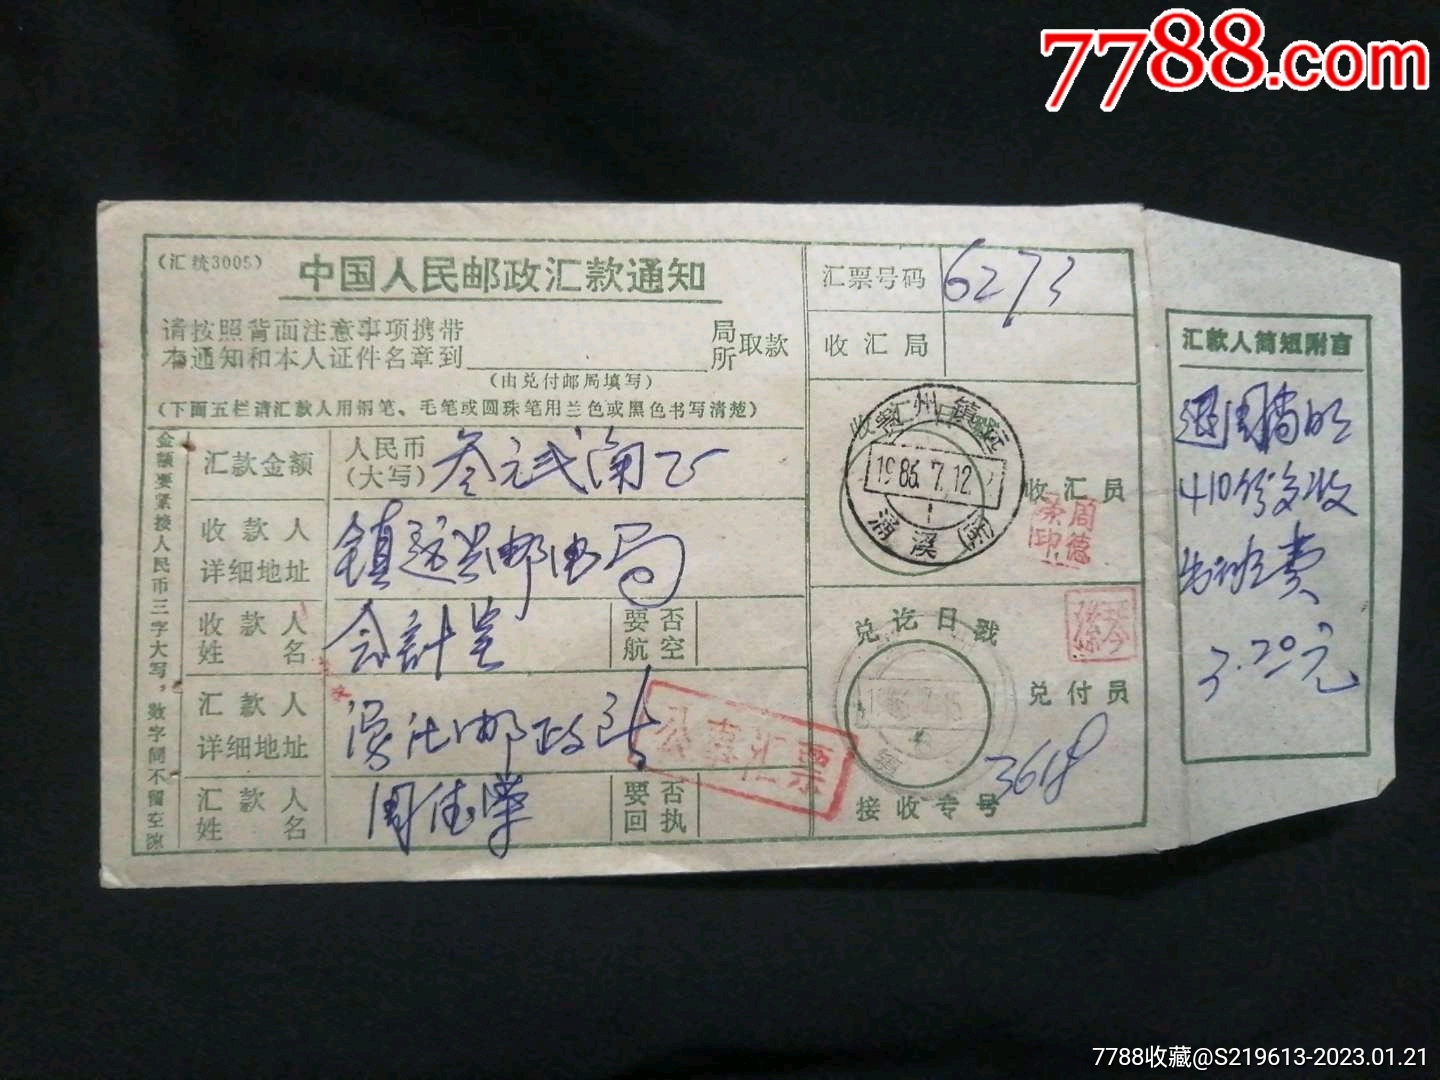 7788.com
(汇统3005)
中国人民邮政汇款通知
请按照背面注意事项携带
本通知和本人证件名章到
局
所
取款
(由兑付邮局填写)
(下面五栏请汇款人用钢笔、毛笔或圆珠笔用兰色或黑色书写清楚)
金额要紧接人民币三字大写，数字间不留空隙
汇款金额
人民币
(大写)
叁元贰角正
收款人
详细地址
镇远县邮电局
收款人
姓名
会計室
要否
航空
汇款人
详细地址
邮政所
公事汇票
汇款人
姓名
周德荣
要否
回执
汇票号码
6273
收汇局
贵州镇远
1986.7.12
涌溪(所)
收汇员
周德荣印
兑讫日戳
兑付员
接收专号
3618
汇款人简短附言
410份
费
3.20元
7788收藏@S219613-2023.01.21